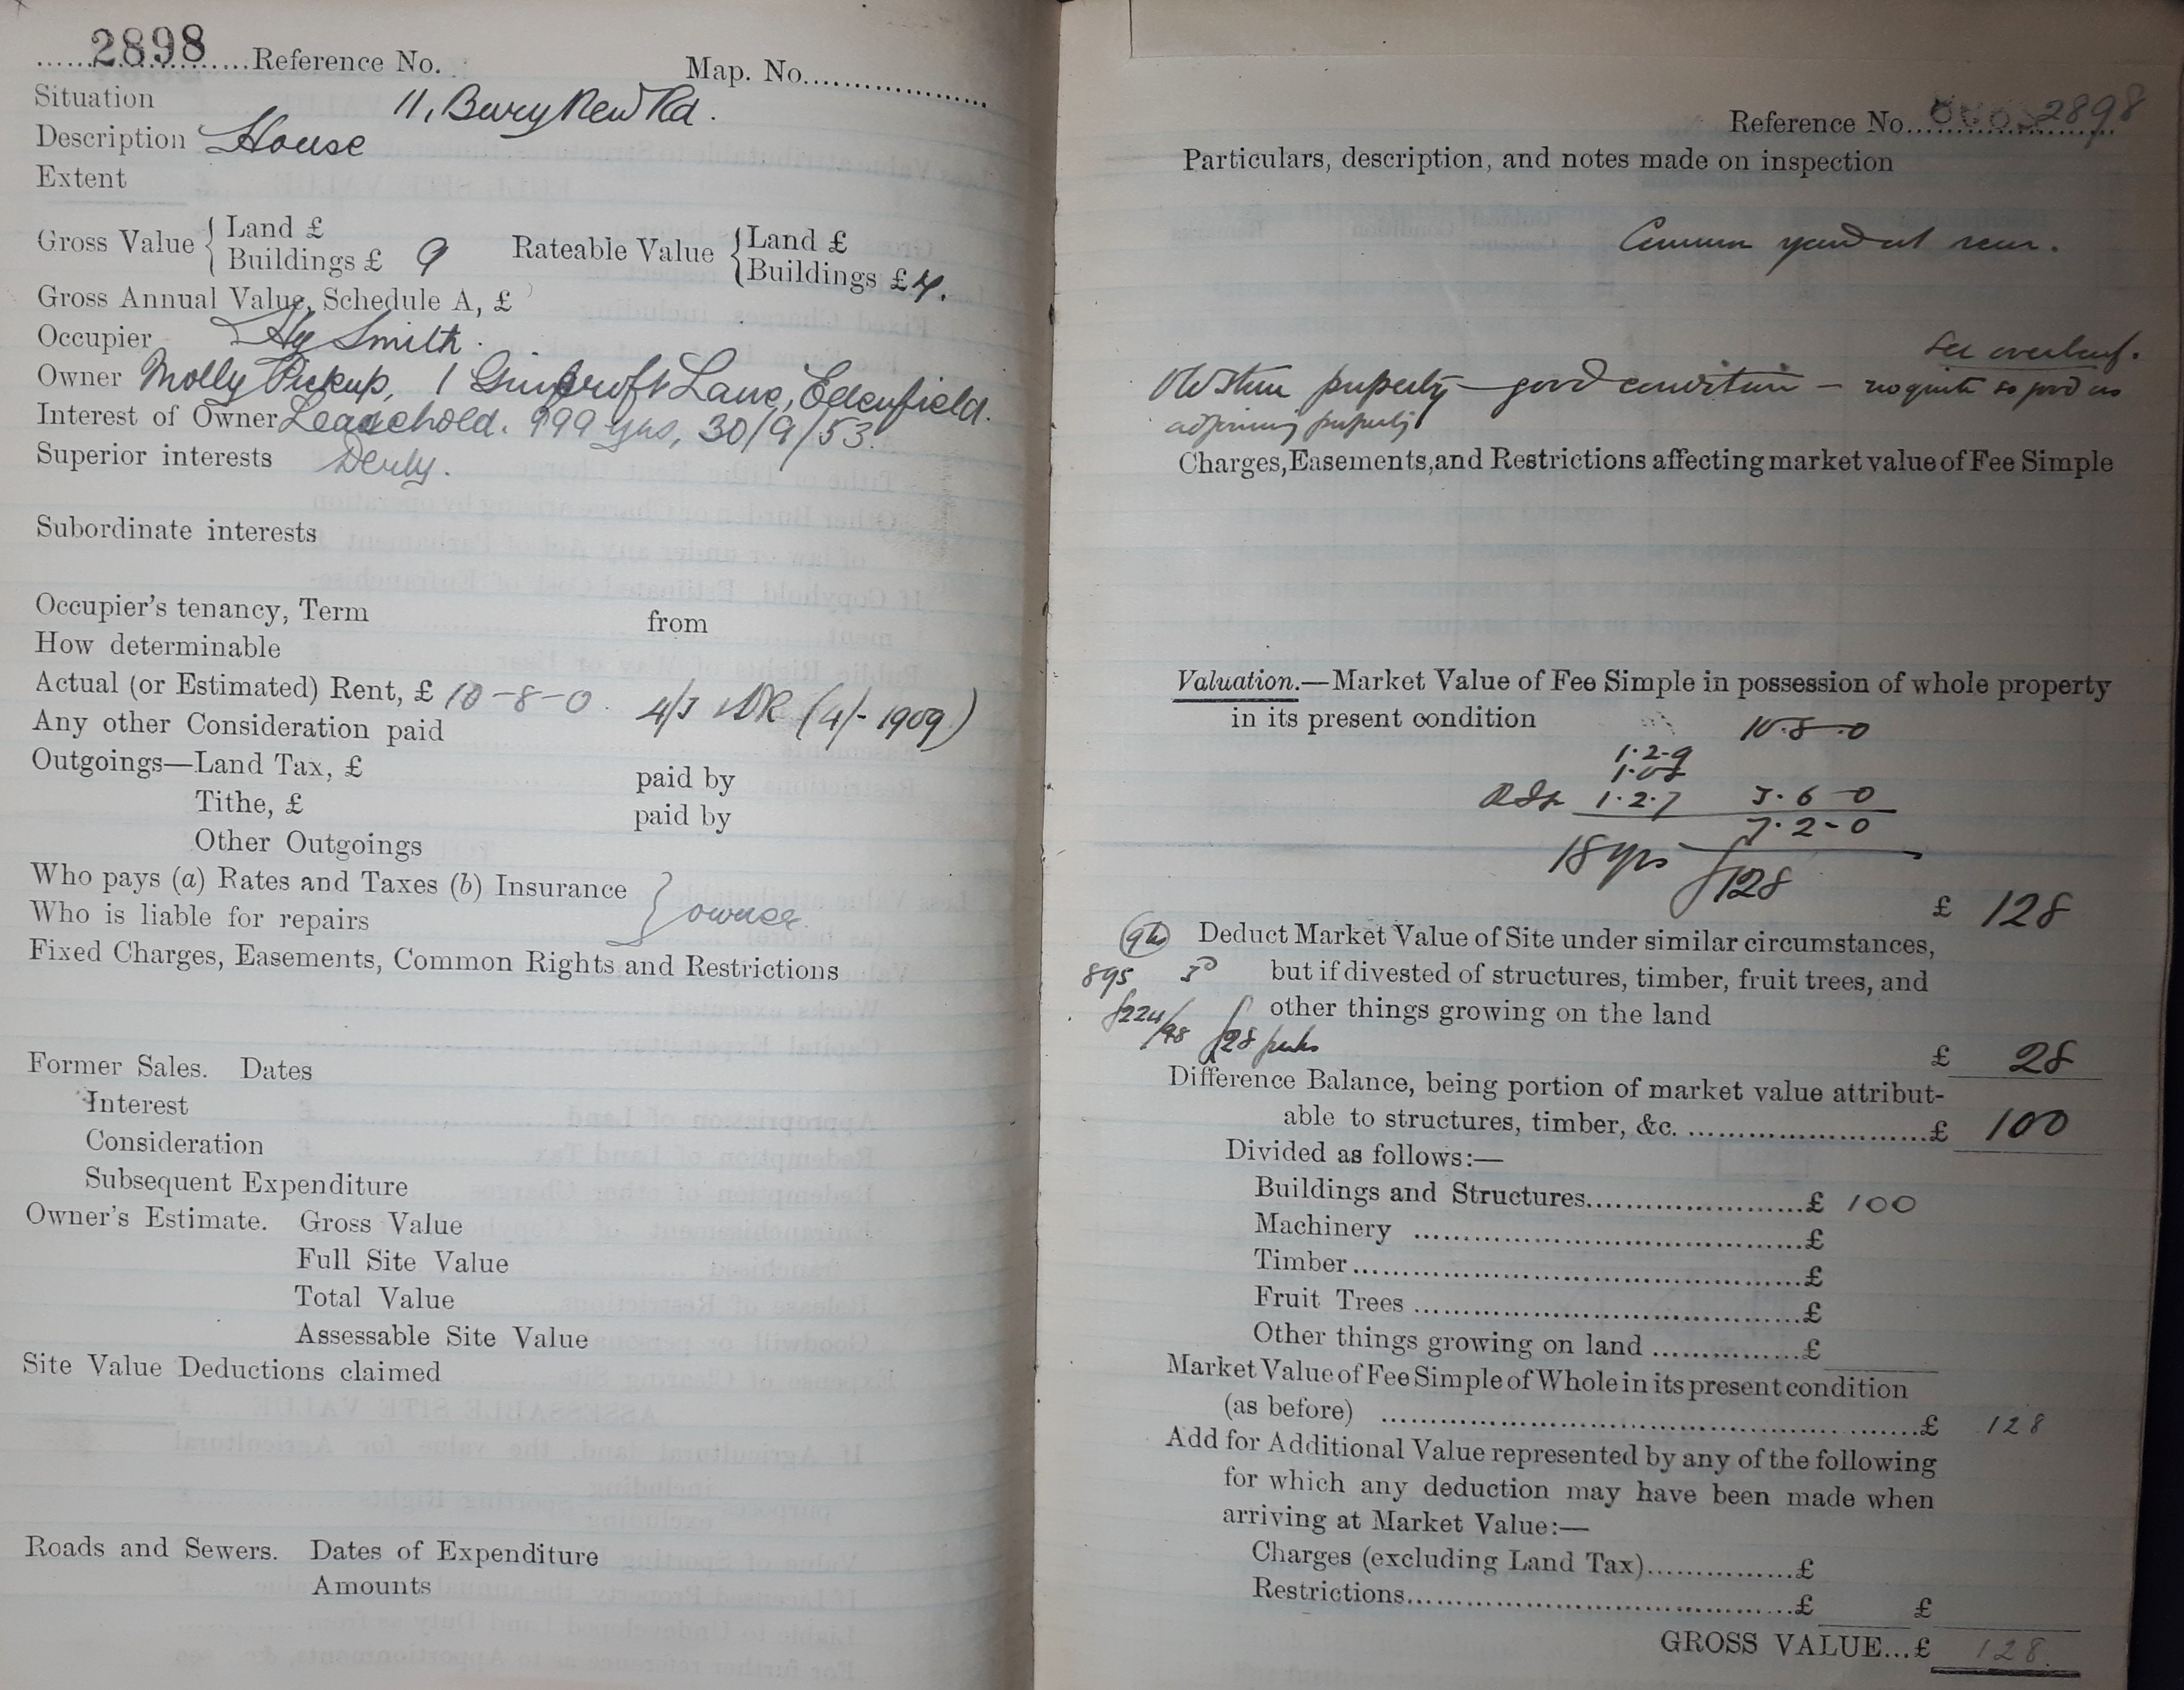 2898 Reference No. Map. No.
Situation 11, Bury New Rd.
Description House
Extent
Gross Value { Land £ Rateable Value { Land £
Buildings £ 9 Buildings £
Gross Annual Value, Schedule A, £
Occupier Hy Smith.
Owner Molly Pickup, 1 Lane, Edenfield.
Interest of Owner Leasehold. 999 yrs, 30/9/53.
Superior interests Derby.
Subordinate interests
Occupier's tenancy, Term from
How determinable
Actual (or Estimated) Rent, £ 10-8-0. (4/- 1909)
Any other Consideration paid
Outgoings—Land Tax, £ paid by
Tithe, £ paid by
Other Outgoings
Who pays (a) Rates and Taxes (b) Insurance } owner
Who is liable for repairs
Fixed Charges, Easements, Common Rights and Restrictions
Former Sales. Dates
Interest
Consideration
Subsequent Expenditure
Owner's Estimate. Gross Value
Full Site Value
Total Value
Assessable Site Value
Site Value Deductions claimed
Roads and Sewers. Dates of Expenditure
Amounts
Reference No. 2898
Particulars, description, and notes made on inspection
Common yard at rear.
See overleaf.
Old Stone property — good condition — not quite so good as
adjoining property
Charges, Easements, and Restrictions affecting market value of Fee Simple
Valuation.—Market Value of Fee Simple in possession of whole property
in its present condition 10.8.0
1.2.9
1.2.7 3.6.0
7.2-0
18 yrs £128
£ 128
Deduct Market Value of Site under similar circumstances,
895 but if divested of structures, timber, fruit trees, and
£224/98 other things growing on the land
£28
£ 28
Difference Balance, being portion of market value attribut-
able to structures, timber, &c. £ 100
Divided as follows:—
Buildings and Structures £ 100
Machinery £
Timber £
Fruit Trees £
Other things growing on land £
Market Value of Fee Simple of Whole in its present condition
(as before) £ 128
Add for Additional Value represented by any of the following
for which any deduction may have been made when
arriving at Market Value:—
Charges (excluding Land Tax) £
Restrictions £ £
GROSS VALUE...£ 128.